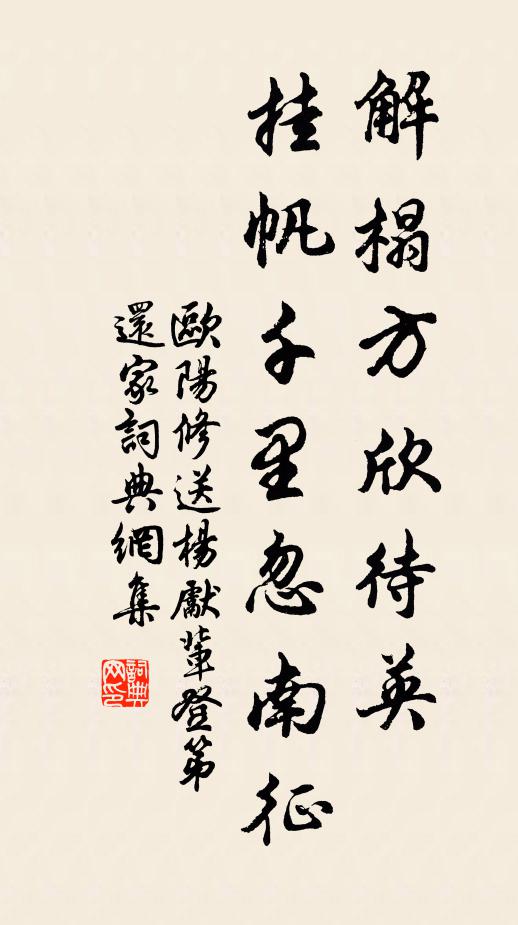 解榻方欣待英
挂帆千里忽南征
歐陽修送楊獻輩登第
還家詞典網集
詞典
网印